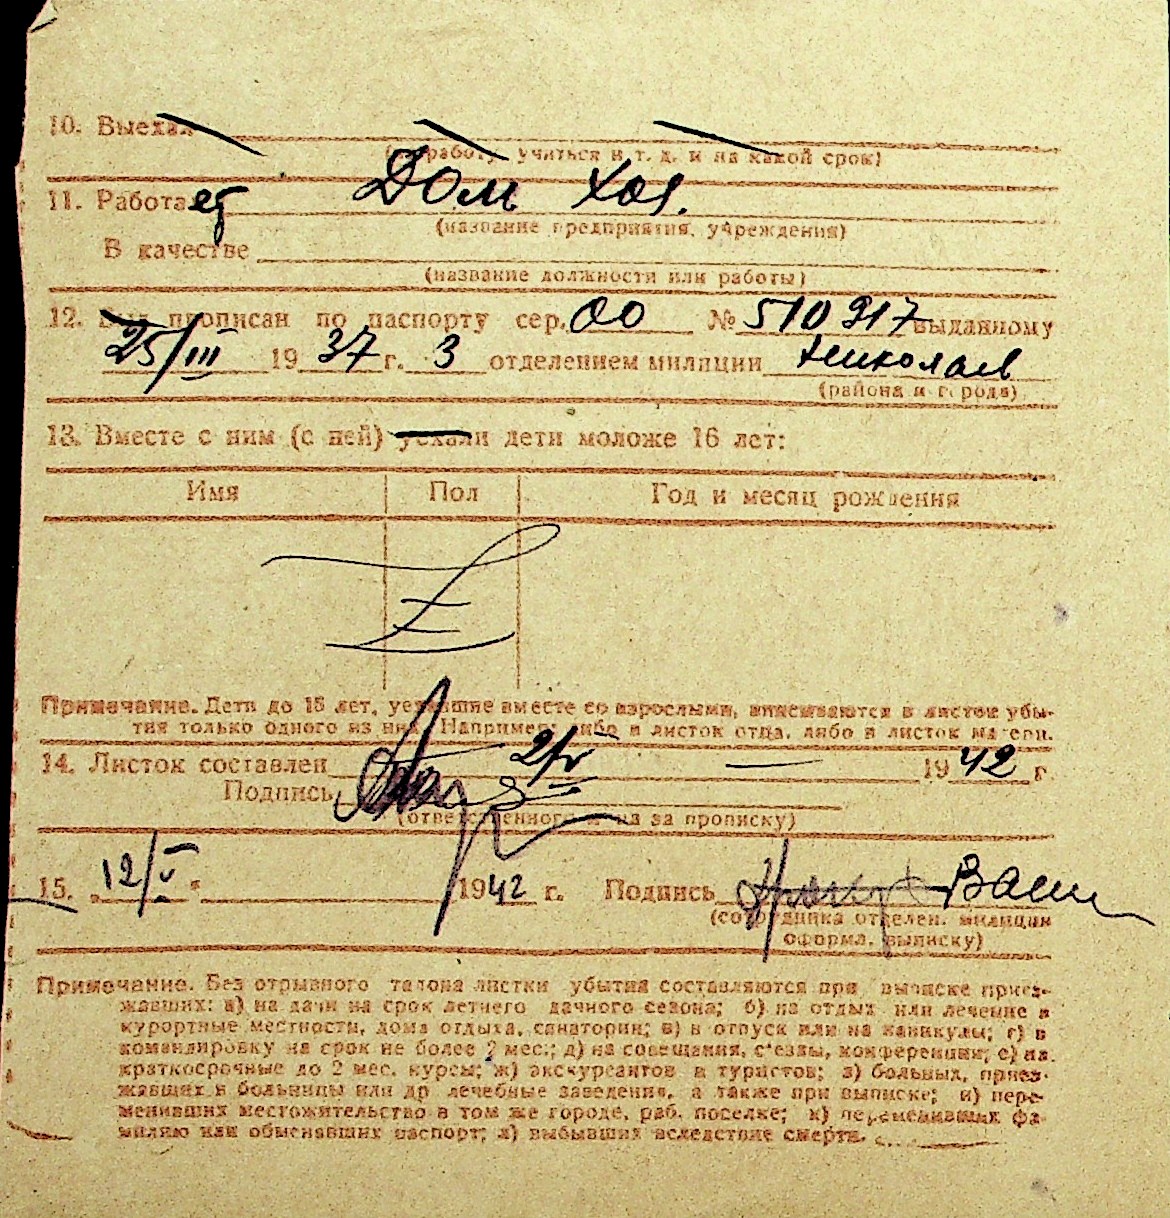 10. Выехал
(на работу учиться и т. д. и на какой срок)
11. Работает Дом хоз.
(название предприятия, учреждения)
В качестве
(название должности или работы)
12. Был прописан по паспорту сер. ОО № 510917 выданному
25/III 1937 г. 3 отделением милиции Николаев
(района и города)
13. Вместе с ним (с ней) уехали дети моложе 16 лет:
Имя Пол Год и месяц рождения
Примечание. Дети до 15 лет, уехавшие вместе со взрослыми, вписываются в листок убы-
тия только одного из них. Например: либо в листок отца, либо в листок матери.
14. Листок составлен 2/V 1942 г.
Подпись
(ответственного за прописку)
15. 12/V 1942 г. Подпись
(сотрудника отделен. милиции
оформл. выписку)
Примечание. Без отрывного талона листки убытия составляются при выписке приез-
жавших: а) на дачи на срок летнего дачного сезона; б) на отдых или лечение в
курортные местности, дома отдыха, санатории; в) в отпуск или на каникулы; г) в
командировку на срок не более 2 мес.; д) на совещания, с'езды, конференции; е) на
краткосрочные до 2 мес. курсы; ж) экскурсантов и туристов; з) больных, приез-
жавших в больницы или др лечебные заведения, а также при выписке; и) пере-
менивших местожительство в том же городе, раб. поселке; к) переменивших фа-
милию или обменявших паспорт; л) выбывших вследствие смерти.